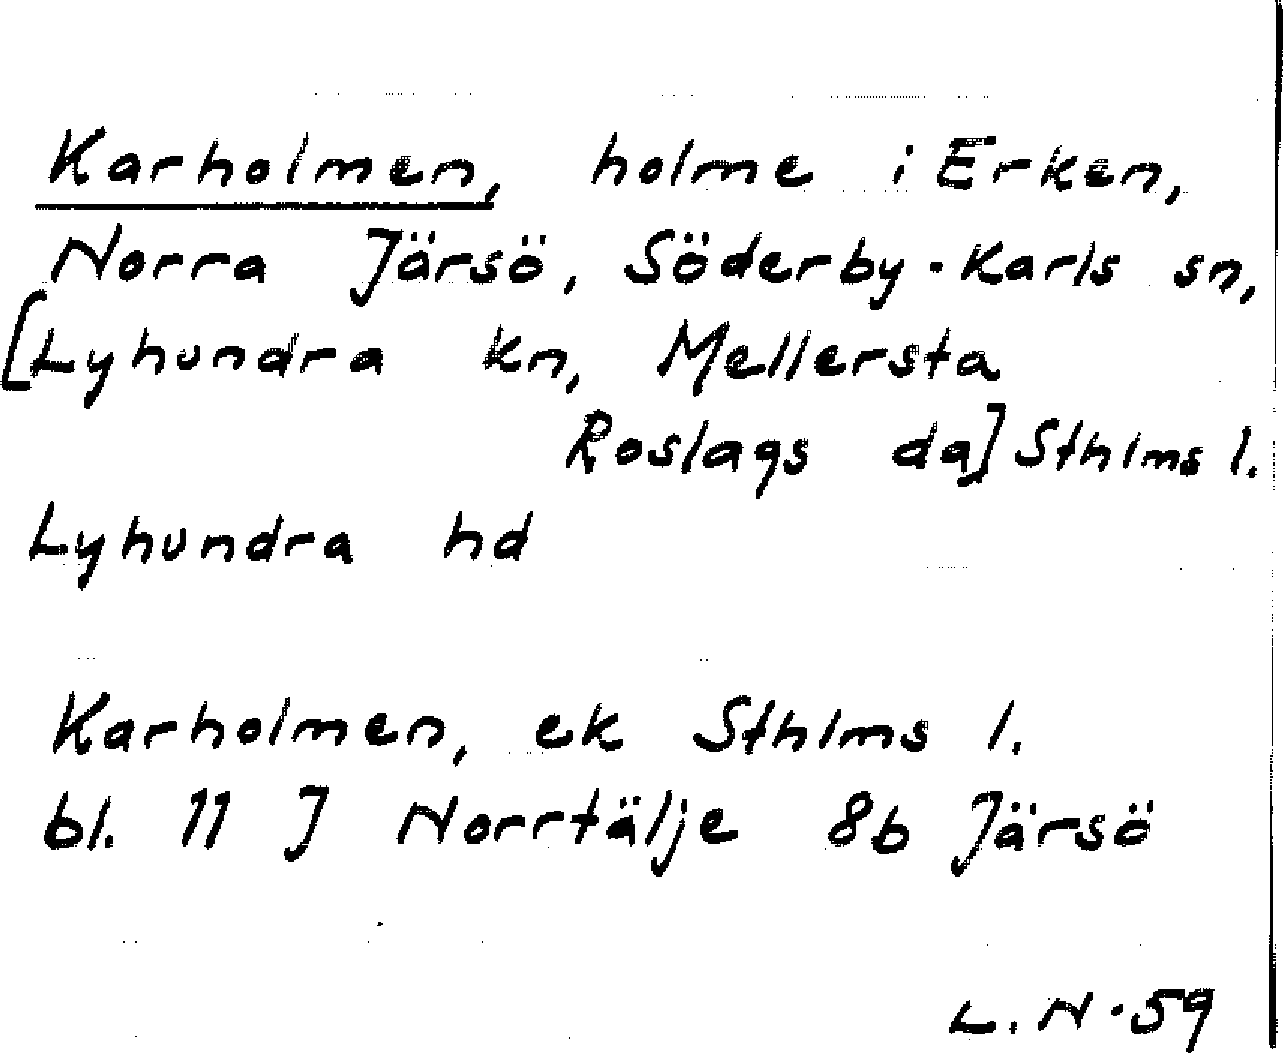 Karholmen, holme i Erken,
Norra Järsö, Söderby-Karls sn,
[Lyhundra kn, Mellersta
Roslags da] Sthlms l.
Lyhundra hd
Karholmen, ek Sthlms l.
bl. 11 J Norrtälje 8b Järsö
L.N.59